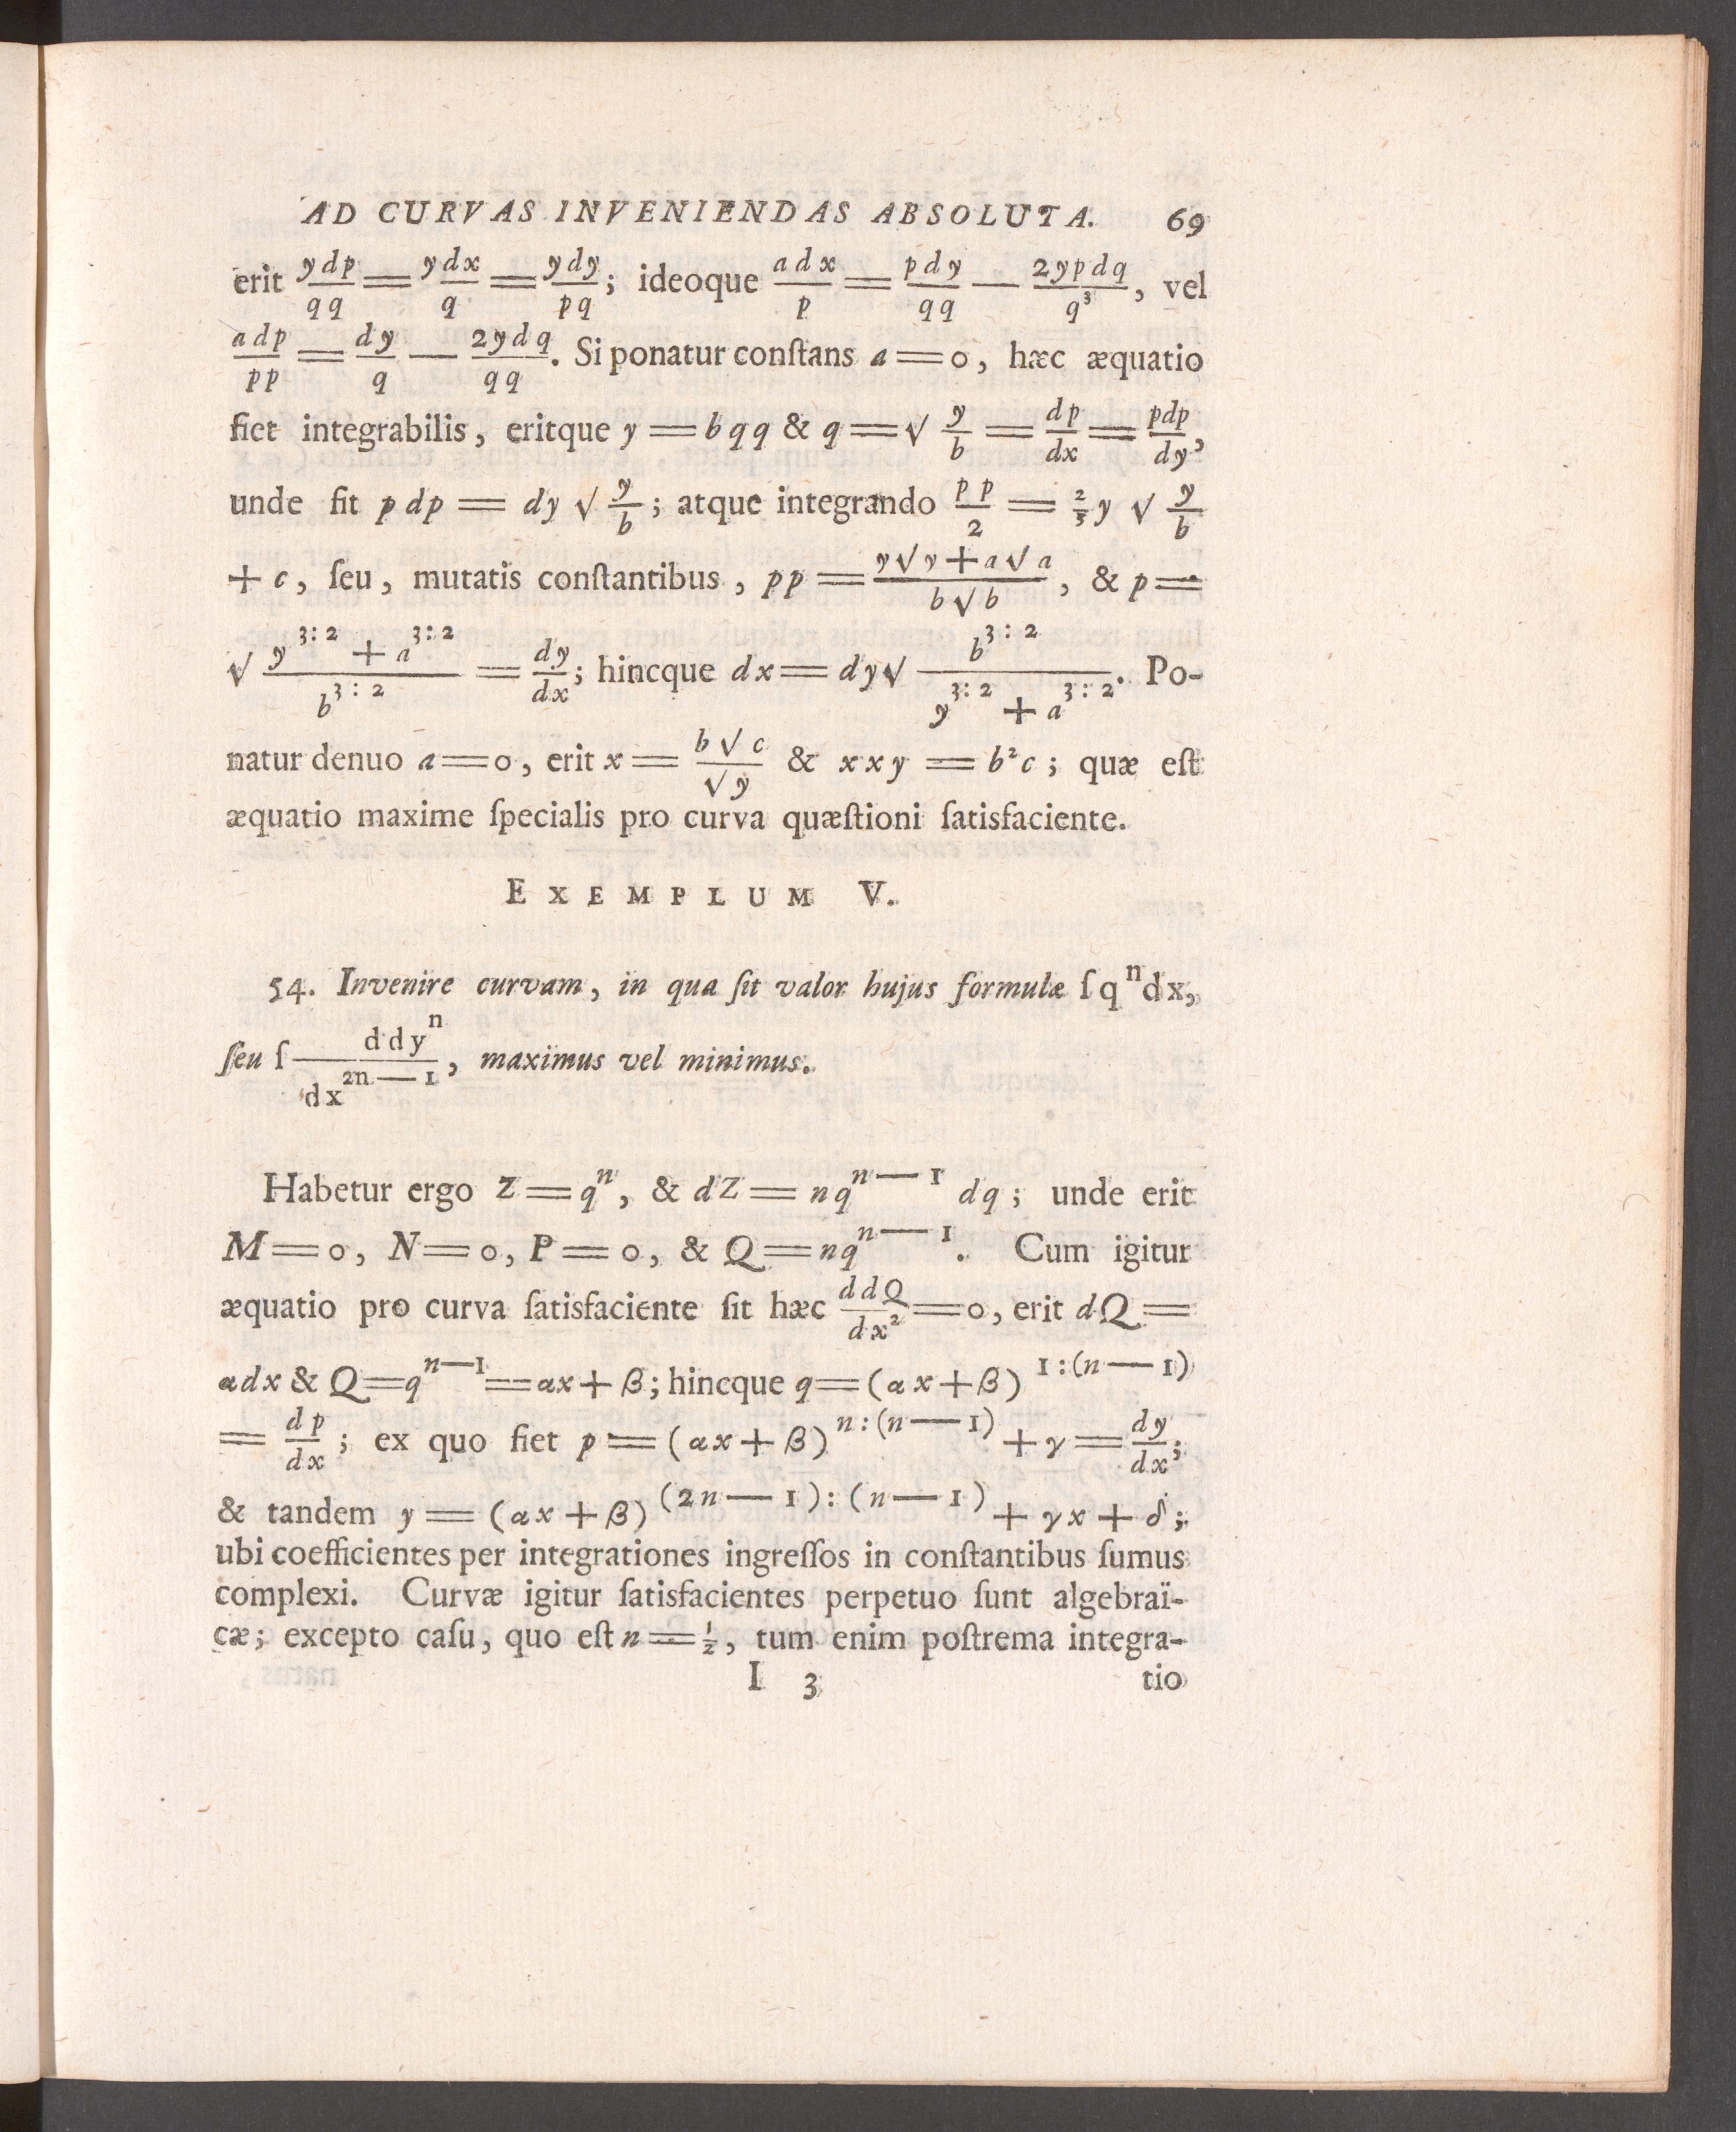 AD CURVAS INVENIENDAS ABSOLUTA. 69
erit $\frac{ydp}{qq} = \frac{ydx}{q} = \frac{ydy}{pq}$; ideoque $\frac{adx}{p} = \frac{pdy}{qq} - \frac{2ypdq}{q^3}$, vel
$\frac{adp}{pp} = \frac{dy}{q} - \frac{2ydq}{qq}$. Si ponatur conſtans $a = 0$, hæc æquatio
fiet integrabilis, eritque $y = bqq$ & $q = √\frac{y}{b} = \frac{dp}{dx} = \frac{pdp}{dy}$,
unde fit $pdp = dy √\frac{y}{b}$; atque integrando $\frac{pp}{2} = \frac{2}{3}y √\frac{y}{b}$
$+ c$, ſeu, mutatis conſtantibus, $pp = \frac{y√y + a√a}{b√b}$, & $p =$
$√\frac{y^{3:2} + a^{3:2}}{b^{3:2}} = \frac{dy}{dx}$; hincque $dx = dy√\frac{b^{3:2}}{y^{3:2} + a^{3:2}}$. Po-
natur denuo $a = 0$, erit $x = \frac{b√c}{√y}$ & $xxy = b^2c$; quæ eſt
æquatio maxime ſpecialis pro curva quæſtioni ſatisfaciente.
EXEMPLUM V.
54. Invenire curvam, in qua ſit valor hujus formulæ $ſq^n dx$,
ſeu $ſ\frac{ddy^n}{dx^{2n-1}}$, maximus vel minimus.
Habetur ergo $Z = q^n$, & $dZ = nq^{n-1} dq$; unde erit
$M = 0$, $N = 0$, $P = 0$, & $Q = nq^{n-1}$. Cum igitur
æquatio pro curva ſatisfaciente ſit hæc $\frac{ddQ}{dx^2} = 0$, erit $dQ =$
$αdx$ & $Q = q^{n-1} = αx + β$; hincque $q = (αx + β)^{1:(n-1)}$
$= \frac{dp}{dx}$; ex quo fiet $p = (αx + β)^{n:(n-1)} + γ = \frac{dy}{dx}$;
& tandem $y = (αx + β)^{(2n-1):(n-1)} + γx + δ$;
ubi coefficientes per integrationes ingreſſos in conſtantibus ſumus
complexi. Curvæ igitur ſatisfacientes perpetuo ſunt algebraï-
cæ; excepto caſu, quo eſt $n = \frac{1}{2}$, tum enim poſtrema integra-
I 3 tio